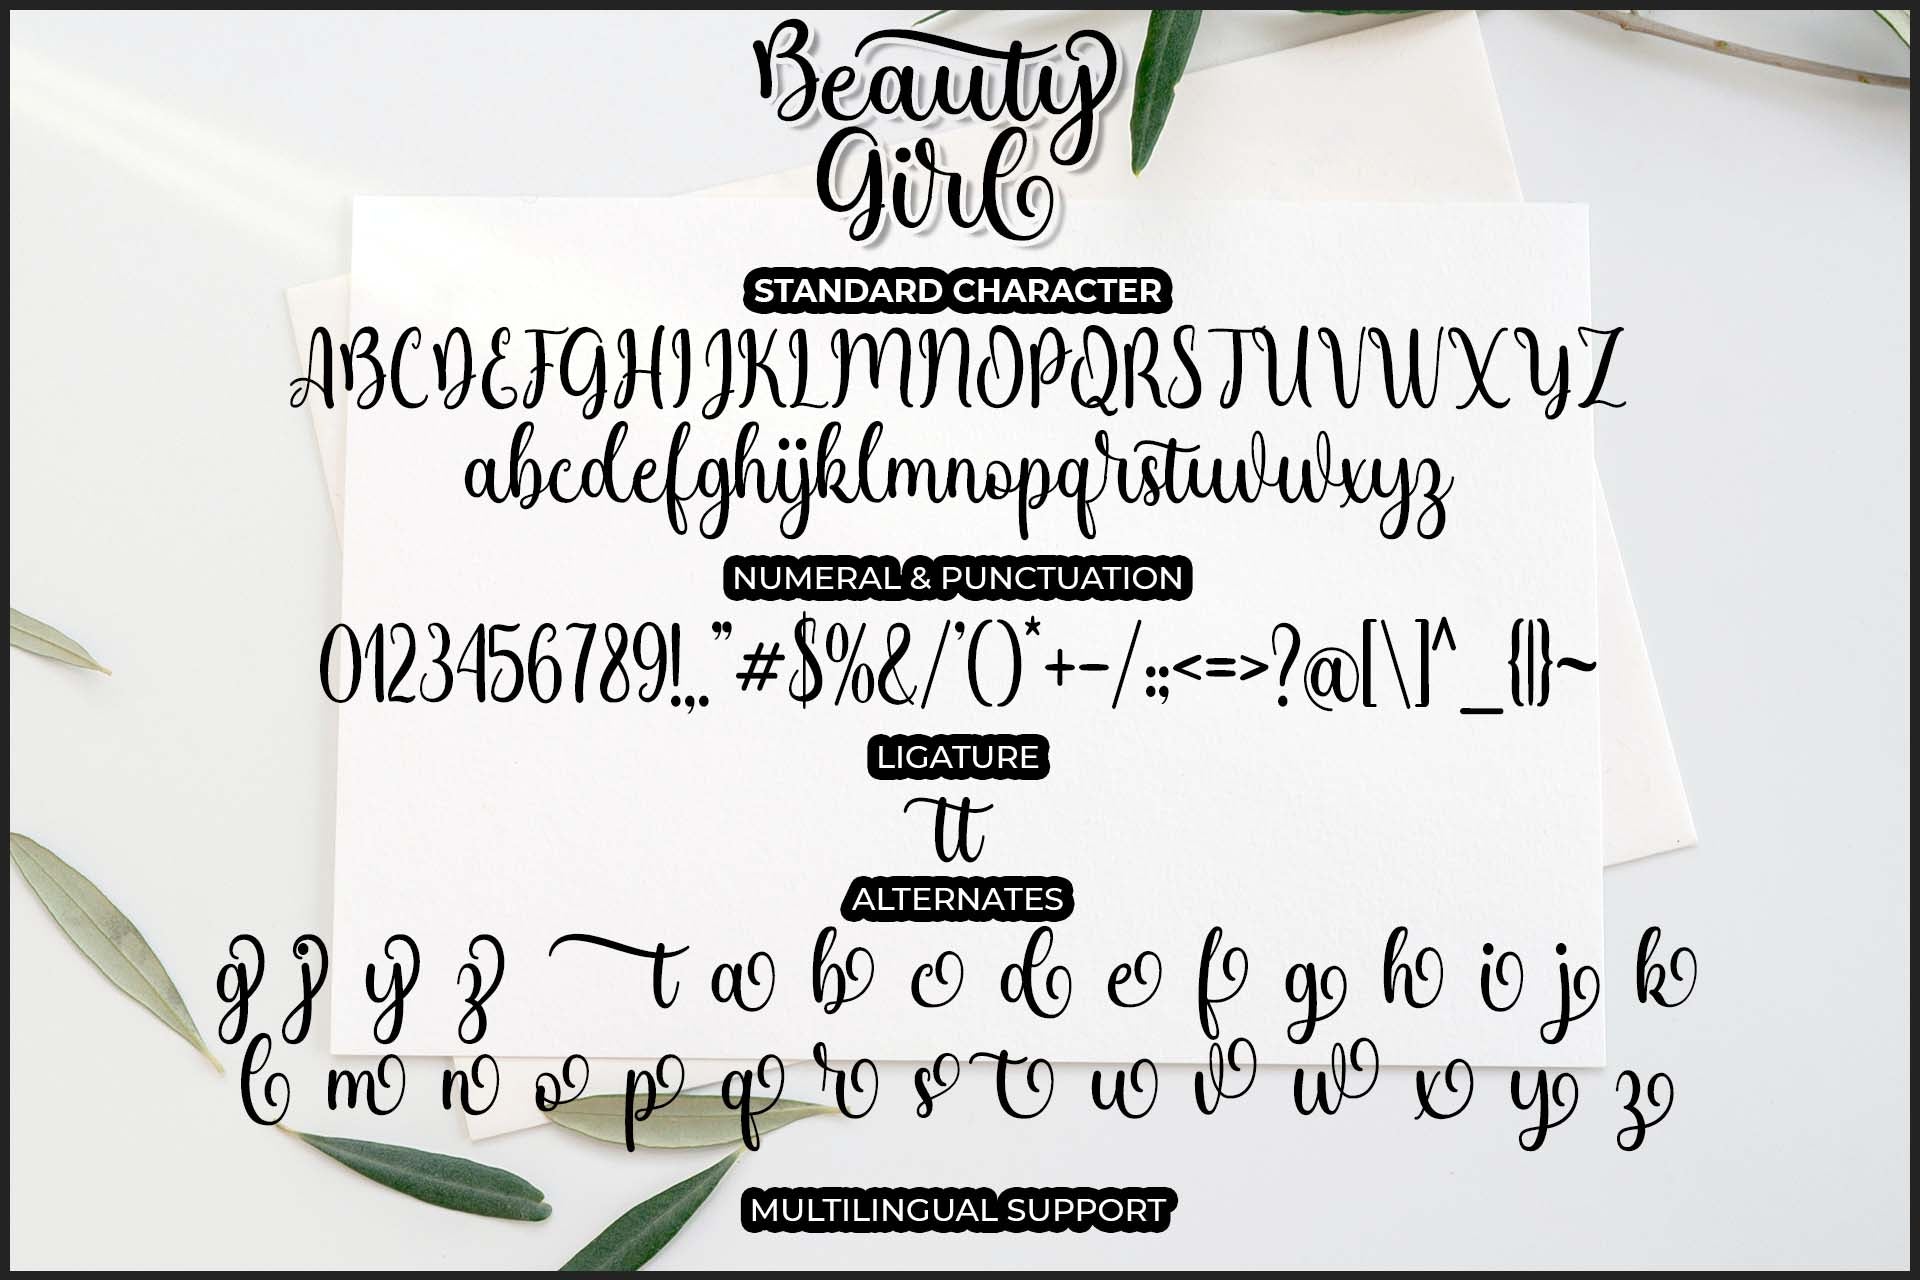 Beauty
Girl
STANDARD CHARACTER
ABCDEFGHIJKLMNOPQRSTUVWXYZ
abcdefghijklmnopqrstuvwxyz
NUMERAL & PUNCTUATION
0123456789!.,."#$%&/'()*+-/:;<=>?@[\]^_{|}~
LIGATURE
tt
ALTERNATES
g j y z t a b c d e f g h i j k
l m n o p q r s t u v w x y z
MULTILINGUAL SUPPORT